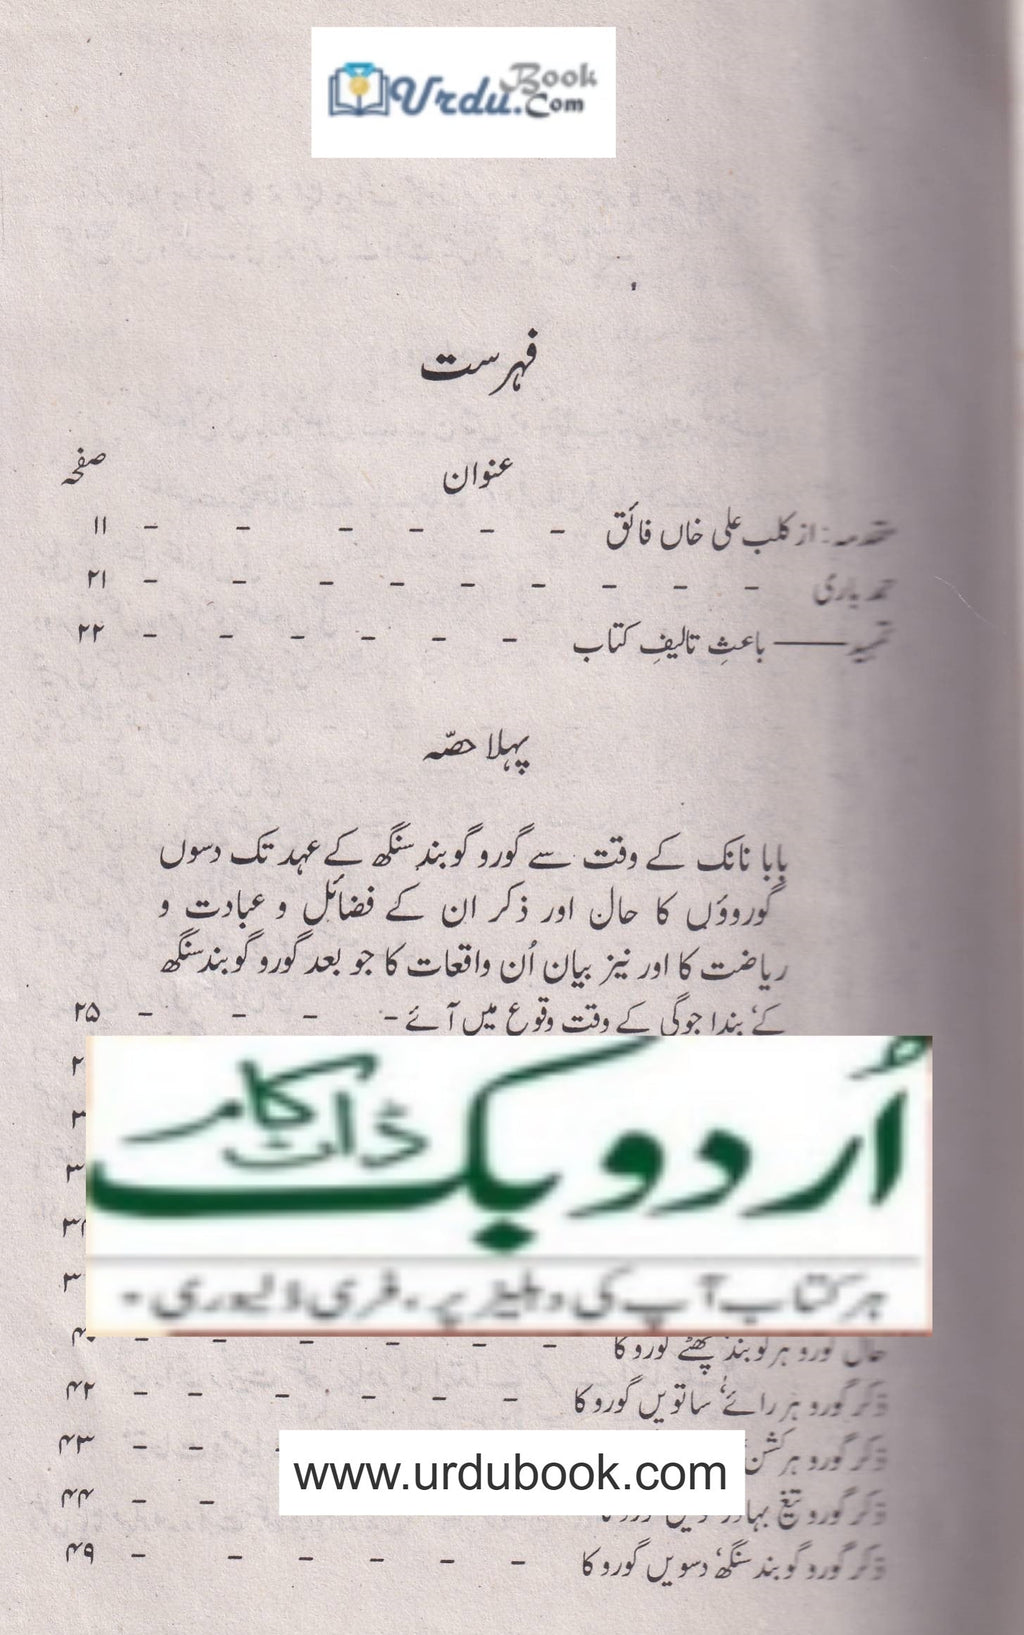 Urdu Book .Com
فہرست
عنوان صفحہ
مقدمہ : از کلب علی خاں فائق - - - - - - ۱۱
حمد باری - - - - - - - - - ۲۱
تمہید —— باعثِ تالیفِ کتاب - - - - - - ۲۲
پہلا حصّہ
بابا نانک کے وقت سے گورو گوبند سنگھ کے عہد تک دسوں
گوروؤں کا حال اور ذکر ان کے فضائل و عبادت و
ریاضت کا اور نیز بیان اُن واقعات کا جو بعد گورو گوبند سنگھ
کے، بندا جوگی کے وقت وقوع میں آئے - - - - - ۲۵
اُردو بک ڈاٹ کام
ہر کتاب آپ کی دہلیز پر، فری ڈلیوری -
حال گورو ہرگوبند، چھٹے گورو کا - - - - - -
ذکر گورو ہر رائے، ساتویں گورو کا - - - - - - ۴۲
ذکر گورو ہر کشن - - ۴۳
www.urdubook.com
ذکر گورو تیغ بہادر - - ۴۴
ذکر گورو گوبند سنگھ، دسویں گورو کا - - - - - - ۴۹